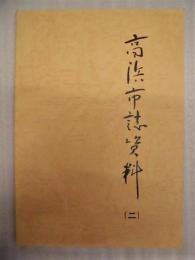 高浜市誌資料
(二)